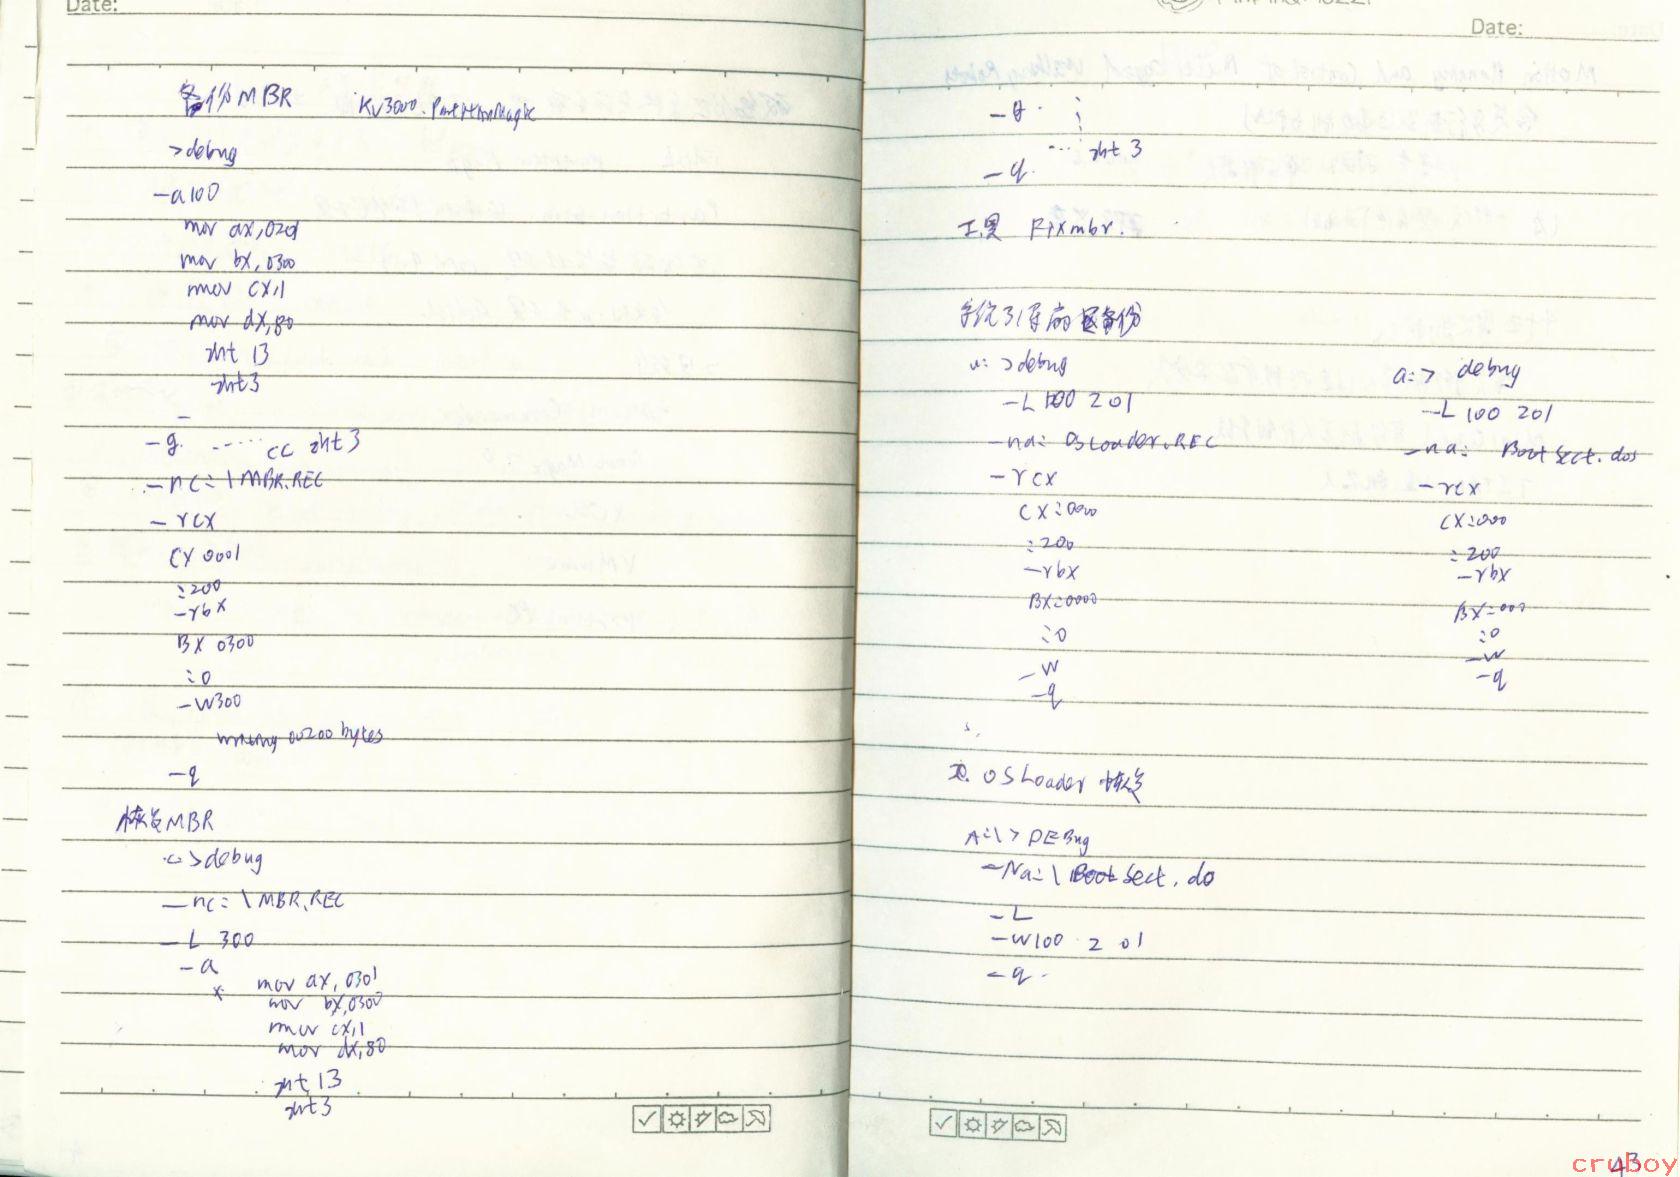 Date:
备份MBR KV3000.PartitionMagic
>debug
-a100
mov ax,0201
mov bx,0300
mov cx,1
mov dx,80
int 13
int3
-
-g ..... cc int3
-nc:\MBR.REC
-rcx
CX 0001
:200
-rbx
BX 0300
:0
-W300
writing 00200 bytes
-q
恢复MBR
c>debug
-nc:\MBR.REC
-L 300
-a
* mov ax,0301
mov bx,0300
mov cx,1
mov dx,80
int 13
int3
Date:
-g.
... int 3
-q.
工具 Fixmbr.
系统引导扇区备份
a:>debug
-L 100 2 0 1
-na: OSLoader.REC
-rcx
CX:0000
:200
-rbx
BX:0000
:0
-W
-q
a:> debug
-L 100 201
-na: Bootsect.dos
-rcx
CX:000
:200
-rbx
BX:000
:0
-W
-q
OSLoader 恢复
A:\>DEBug
-Na:\BootSect.do
-L
-W100 2 01
-q.
43
cruboy